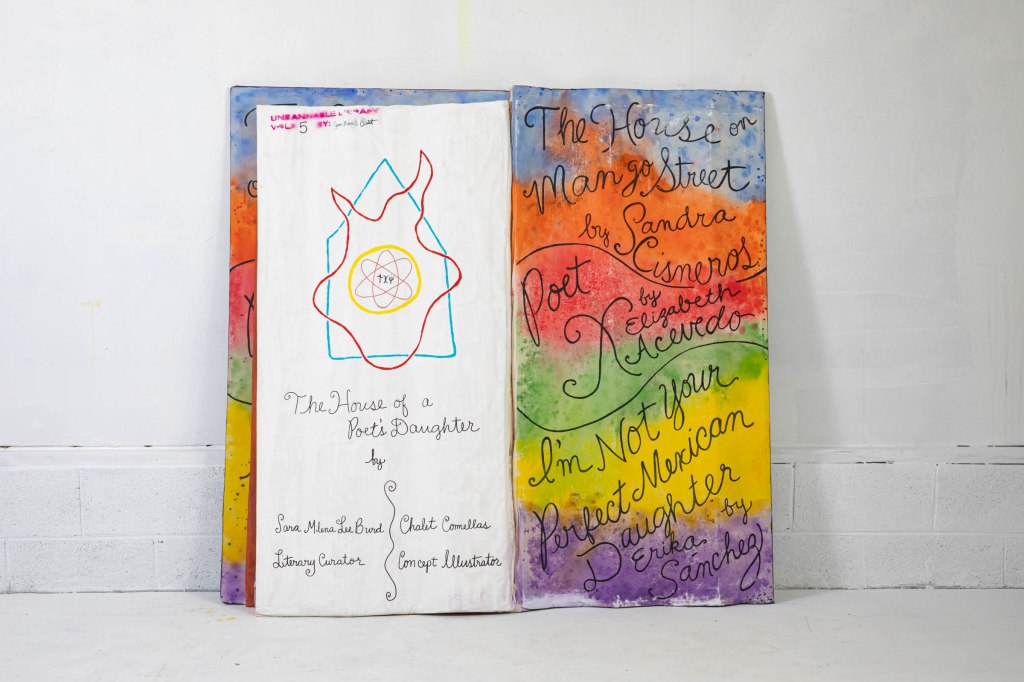 UNBANNABLE LIBRARY
VOL# 5 BY:
The House of a
Poet's Daughter
by
Sara Milena Lee Burd
Literary Curator
Chalet Comellas
Concept Illustrator
The House on
Mango Street
by Sandra
Cisneros
Poet
X
by
Elizabeth
Acevedo
I'm Not Your
Perfect Mexican
Daughter by
Erika
Sánchez